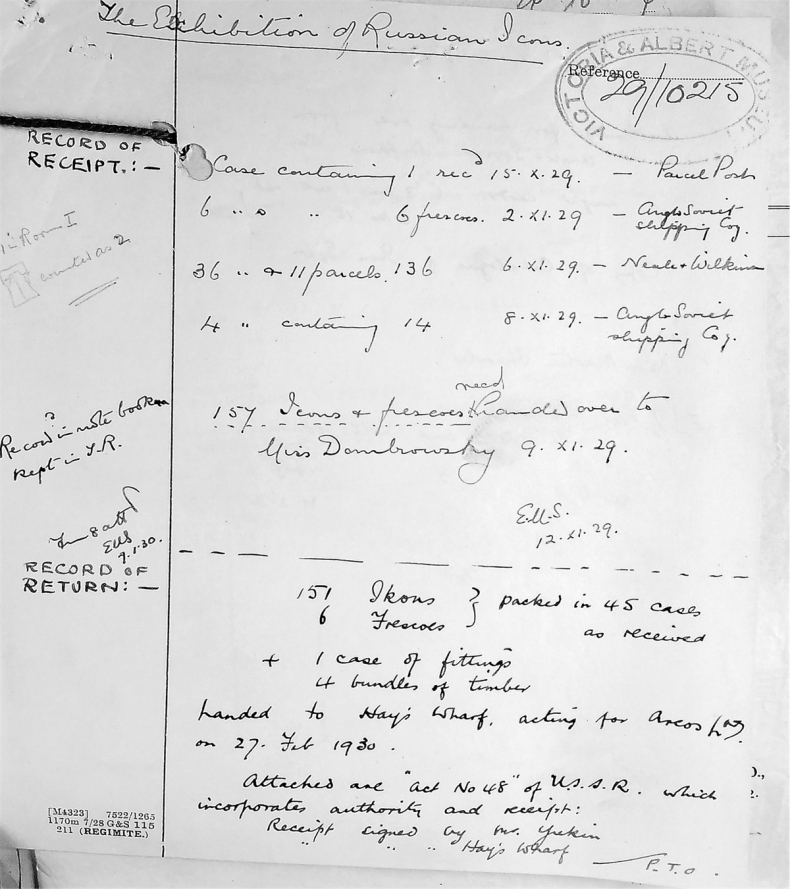 The Exhibition of Russian Icons.
VICTORIA & ALBERT MUSEUM
Reference
29/10215
RECORD OF
RECEIPT.:—
Case containing 1 recd 15.X.29. — Parcel Post
6 " " " 6 frescoes. 2.XI.29 — Anglo Soviet
shipping Coy.
36 " & 11 parcels. 136 6.XI.29. — Neale & Wilkins
4 " containing 14 8.XI.29. — Anglo Soviet
shipping Coy.
in Room I
counted as 2
recd
157 Icons & frescoes & handed over to
Miss Dombrowsky 9.XI.29.
?
Record in note book
kept in T.R.
E.M.S.
12.XI.29.
EMS
9.1.30.
RECORD OF
RETURN:—
151 Ikons } packed in 45 cases
6 Frescoes as received
+ 1 case of fittings
4 bundles of timber
handed to Hay's Wharf, acting for Arcos Ltd.
on 27. Feb 1930.
Attached are "Act No 48" of U.S.S.R. which
incorporates authority and receipt:
Receipt signed by Mr.
" " " Hay's Wharf
P.T.O.
[M4323] 7522/1265
1170m 7/28 G&S 115
211 (REGIMITE.)